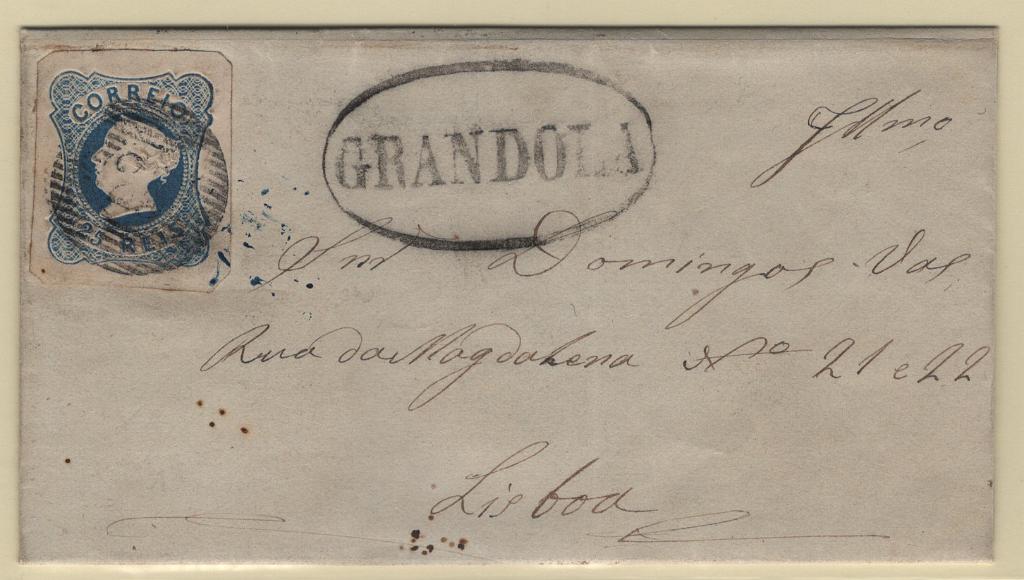 CORREIO
25 REIS
GRANDOLA
Illmo
Snr Domingos Vas
Rua da Magdalena No 21 e 22
Lisboa